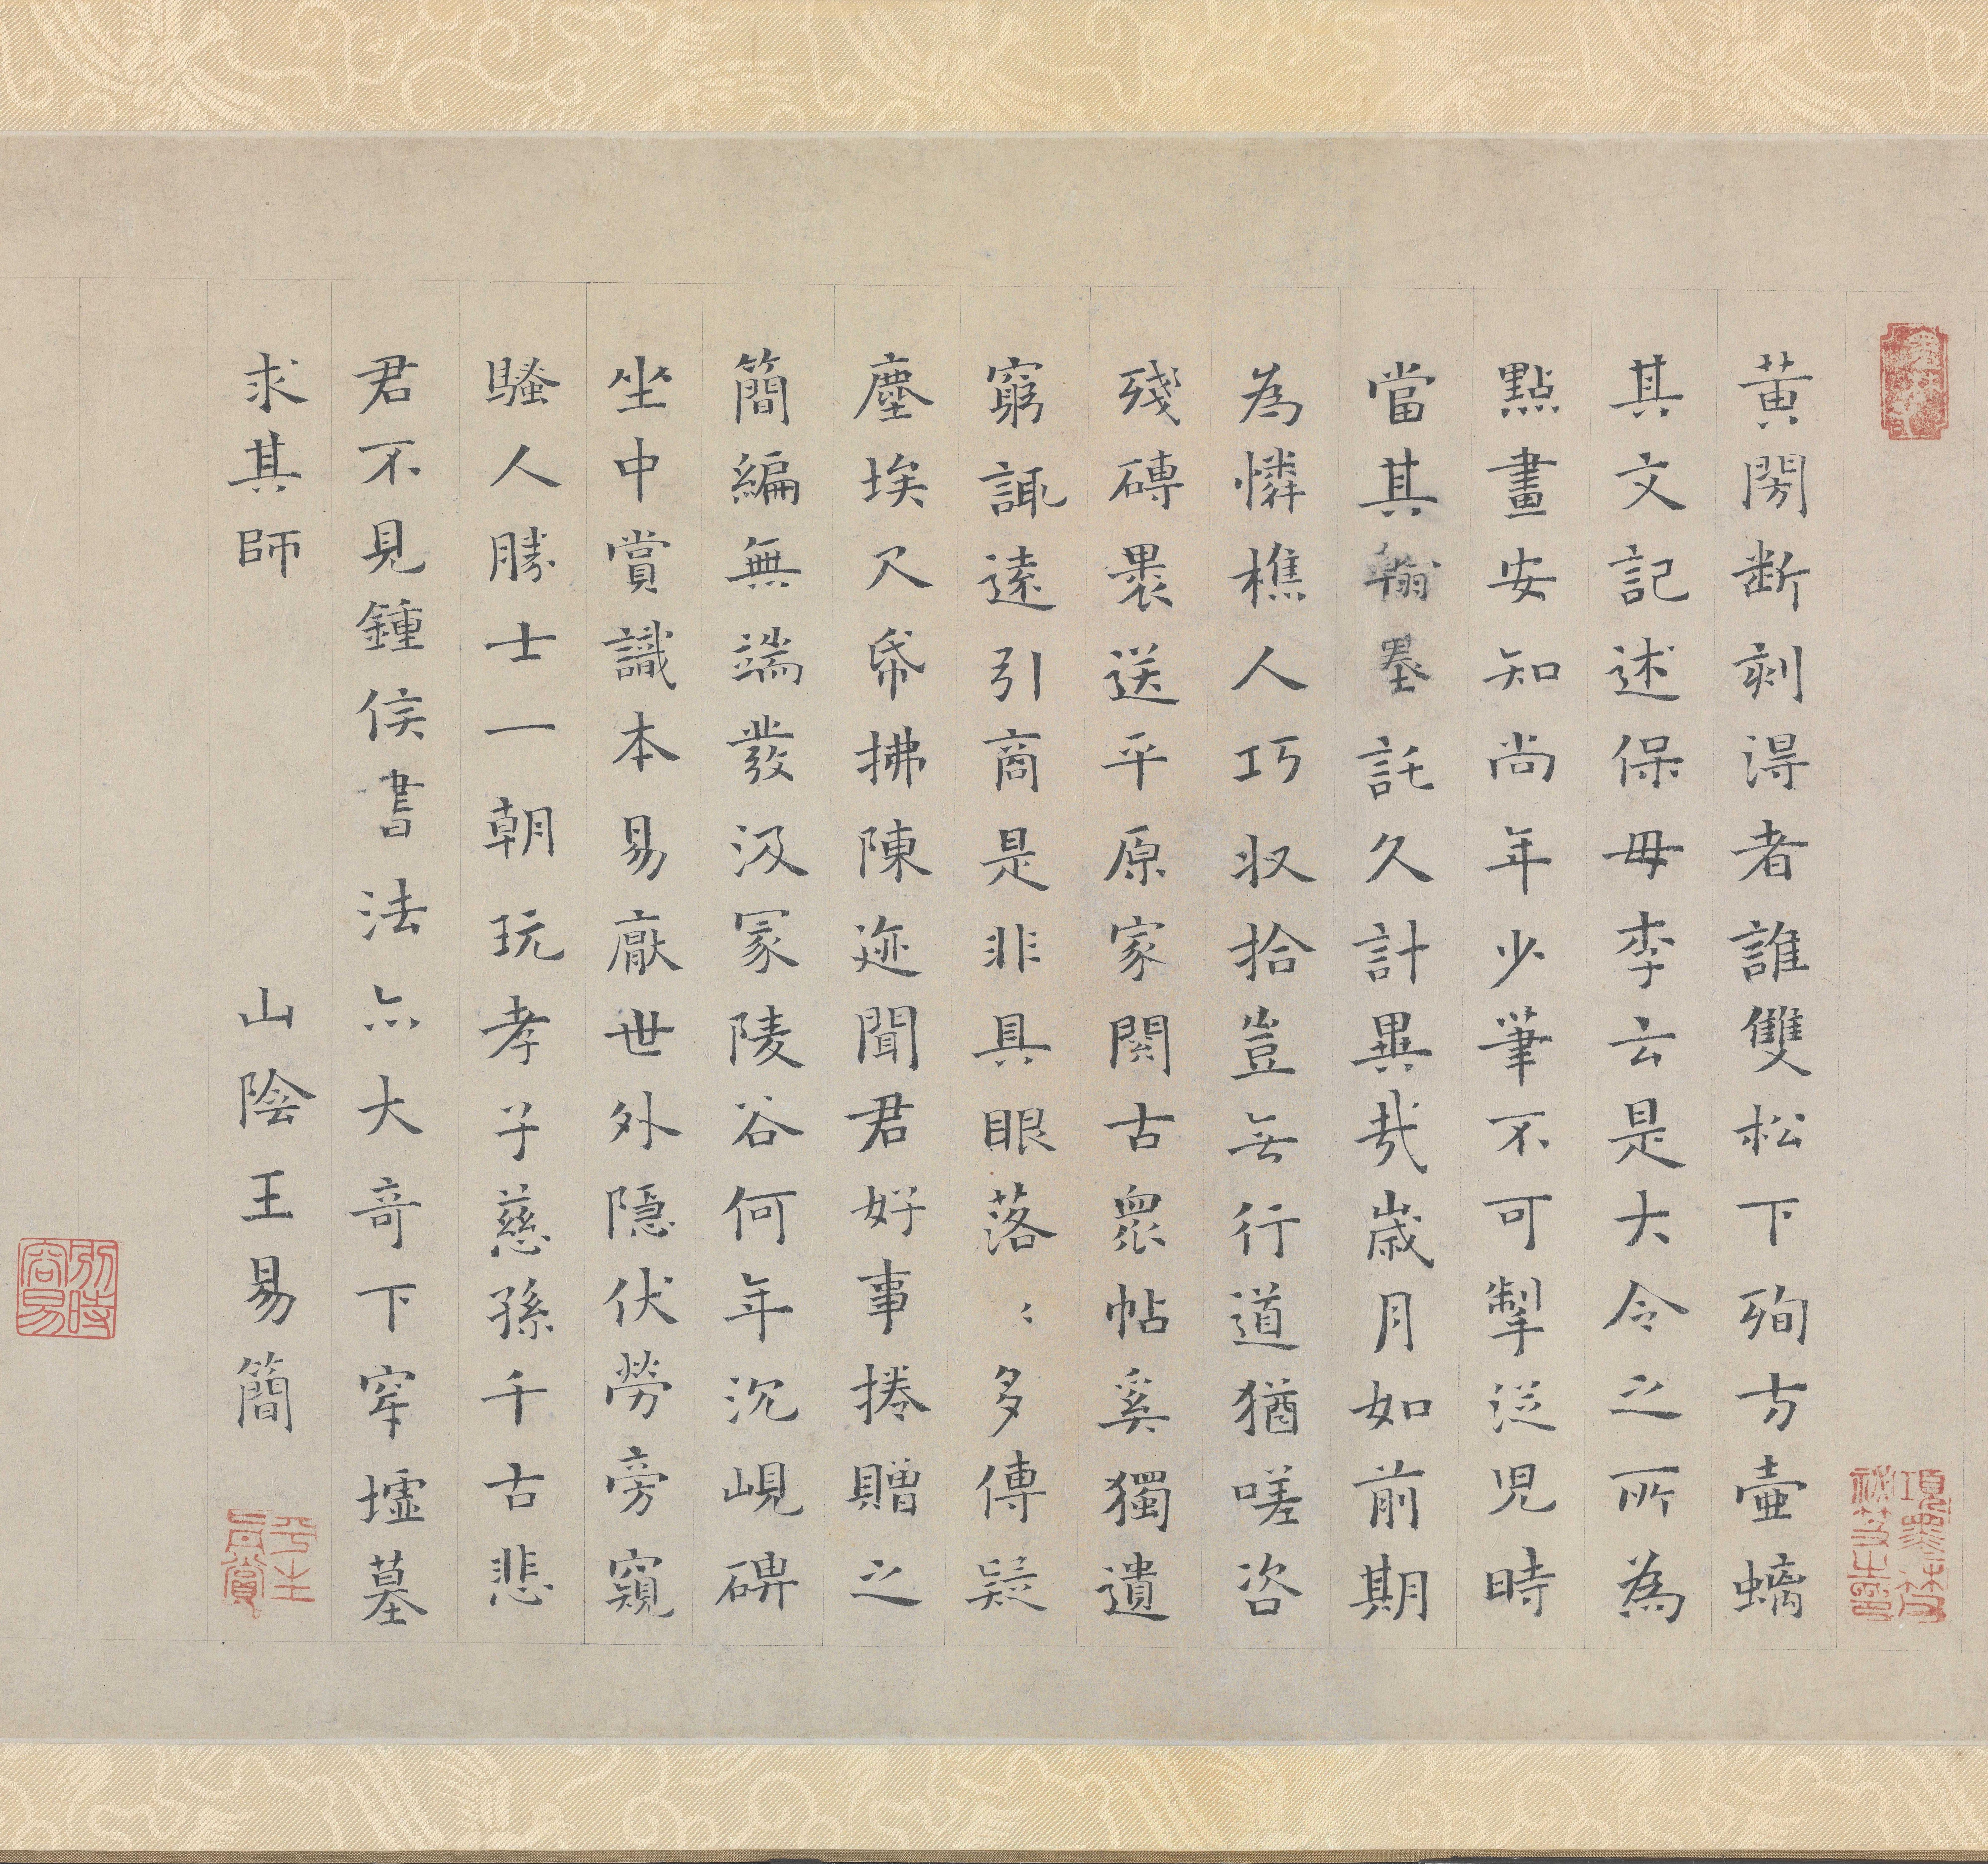 黄閍断刻得者誰雙松下殉方壷螭
其文記述保毋李云是大令之所為
點畫安知尚年少筆不可掣従児時
當其翰墨託久計異哉歳月如前期
為憐樵人巧収拾豈無行道猶嗟咨
殘磚褁送平原家閱古衆帖奚獨遺
窮諏逺引商是非具眼落〻多傳疑
塵埃尺帋拂陳迹聞君好事捲贈之
簡編無端發汲冢陵谷何年沉峴碑
坐中賞識本易厭世外隠伏勞旁窺
騷人勝士一朝玩孝子慈孫千古悲
君不見鍾侯書法亦大奇下穿墟墓
求其師
山陰王易簡